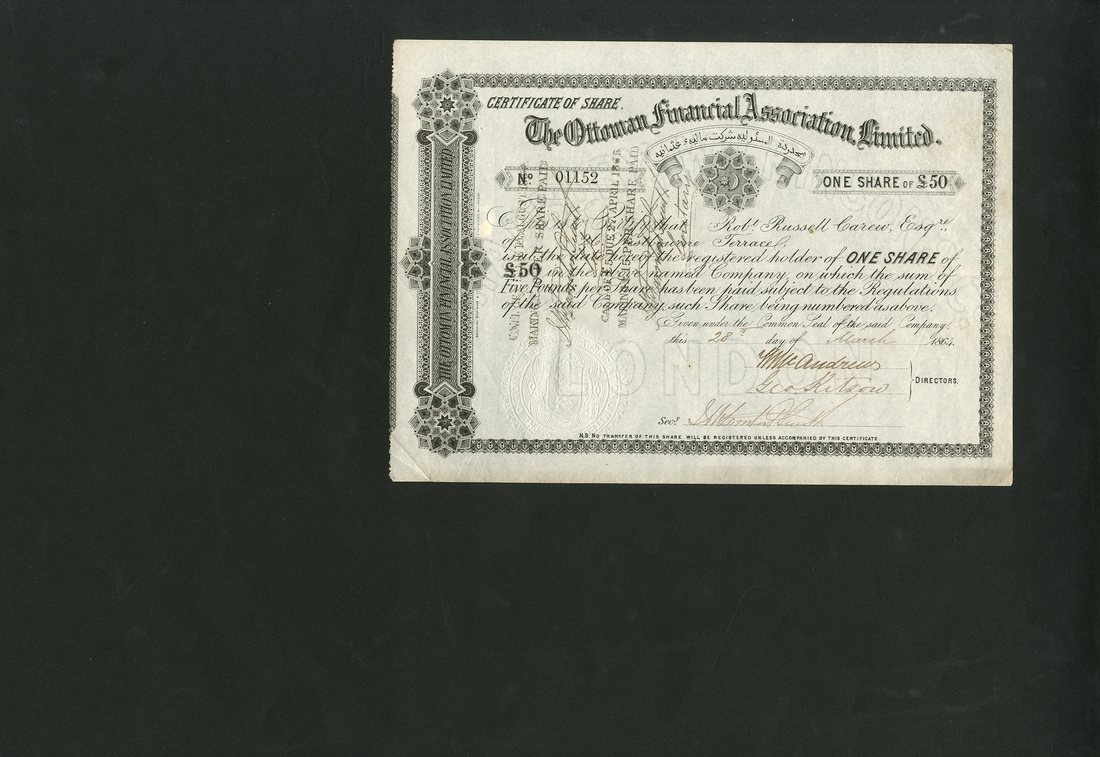 CERTIFICATE OF SHARE.
The Ottoman Financial Association, Limited.
Nº 01152
ONE SHARE OF £50
This is to Certify that Robt Russell Carew, Esqre,
of Westbourne Terrace
is at the date hereof the registered holder of ONE SHARE of
£50 in the above named Company, on which the sum of
Five Pounds per Share has been paid subject to the Regulations
of the said Company, such Share being numbered as above.
Given under the Common Seal of the said Company,
this 28 day of March 1864.
Wm McAndrew
Geo Kitson
DIRECTORS.
Secy.
N.B. NO TRANSFER OF THIS SHARE WILL BE REGISTERED UNLESS ACCOMPANIED BY THIS CERTIFICATE.
THE OTTOMAN FINANCIAL ASSOCIATION LIMITED
PER SHARE PAID
DUE 27 APRIL 1865
PER SHARE PAID
LONDON